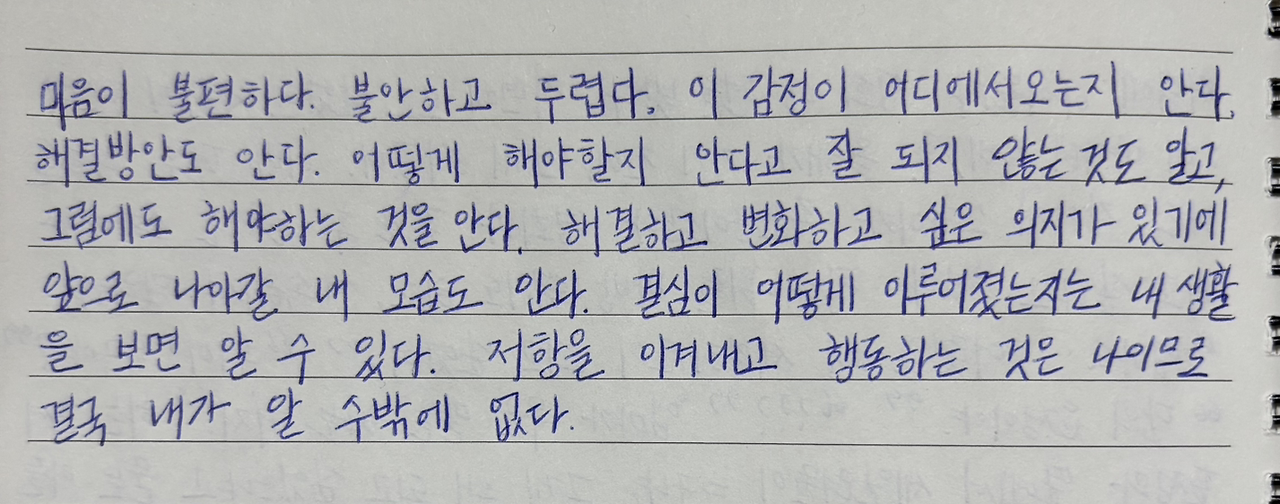 마음이 불편하다. 불안하고 두렵다. 이 감정이 어디에서오는지 안다.
해결방안도 안다. 어떻게 해야할지 안다고 잘 되지 않는 것도 알고,
그럼에도 해야하는 것을 안다. 해결하고 변화하고 싶은 의지가 있기에
앞으로 나아갈 내 모습도 안다. 결심이 어떻게 이루어졌는지는 내 생활
을 보면 알 수 있다. 저항을 이겨내고 행동하는 것은 나이므로
결국 내가 알 수밖에 없다.